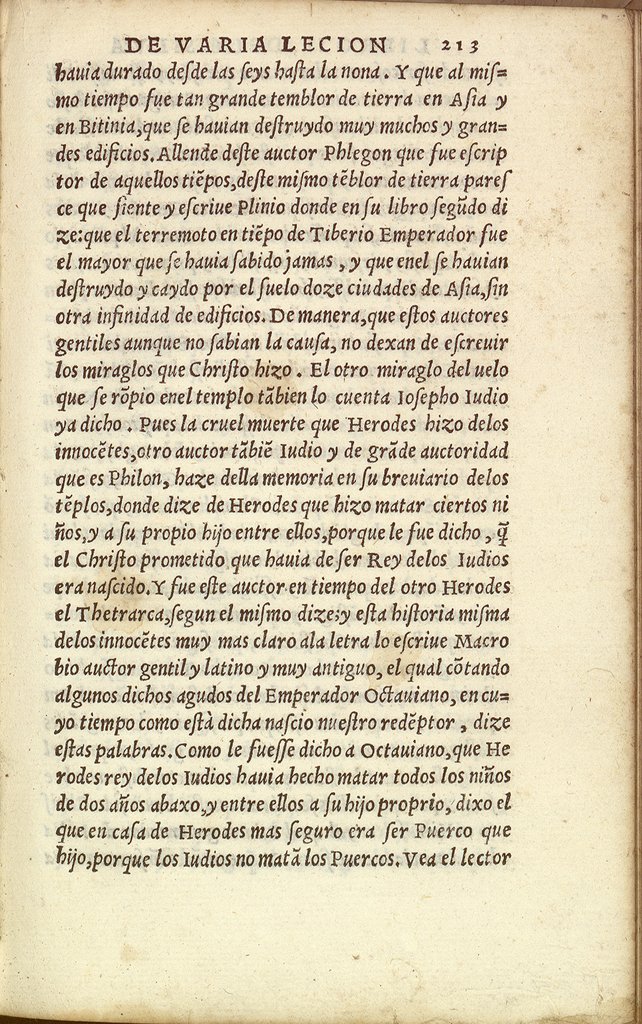 DE VARIA LECION 213
hauia durado deſde las ſeys haſta la nona. Y que al miſ=
mo tiempo fue tan grande temblor de tierra en Aſia y
en Bitinia,que ſe hauian deſtruydo muy muchos y gran=
des edificios. Allende deſte auctor Phlegon que fue eſcrip
tor de aquellos tiẽpos,deſte miſmo tẽblor de tierra pareſ
ce que ſiente y eſcriue Plinio donde en ſu libro ſegũdo di
ze:que el terremoto en tiẽpo de Tiberio Emperador fue
el mayor que ſe hauia ſabido jamas , y que enel ſe hauian
deſtruydo y caydo por el ſuelo doze ciudades de Aſia,ſin
otra infinidad de edificios. De manera,que eſtos auctores
gentiles aunque no ſabian la cauſa, no dexan de eſcreuir
los miraglos que Chriſto hizo . El otro miraglo del uelo
que ſe rõpio enel templo tãbien lo cuenta Ioſepho Iudio
ya dicho . Pues la cruel muerte que Herodes hizo delos
innocẽtes,otro auctor tãbiẽ Iudio y de grãde auctoridad
que es Philon, haze della memoria en ſu breuiario delos
tẽplos,donde dize de Herodes que hizo matar ciertos ni
ños,y a ſu propio hijo entre ellos,porque le fue dicho , q̃
el Chriſto prometido que hauia de ſer Rey delos Iudios
era naſcido. Y fue eſte auctor en tiempo del otro Herodes
el Thetrarca,ſegun el miſmo dize;y eſta hiſtoria miſma
delos innocẽtes muy mas claro ala letra lo eſcriue Macro
bio auctor gentil y latino y muy antiguo, el qual cõtando
algunos dichos agudos del Emperador Octauiano, en cu=
yo tiempo como eſtà dicha naſcio nueſtro redẽptor , dize
eſtas palabras. Como le fueſſe dicho a Octauiano,que He
rodes rey delos Iudios hauia hecho matar todos los niños
de dos años abaxo,y entre ellos a ſu hijo proprio, dixo el
que en caſa de Herodes mas ſeguro era ſer Puerco que
hijo,porque los Iudios no matã los Puercos. Vea el lector